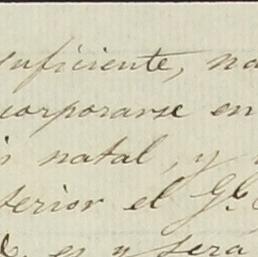 suficiente, na
corporarse en
natal, y
terior el Gl.
es y será